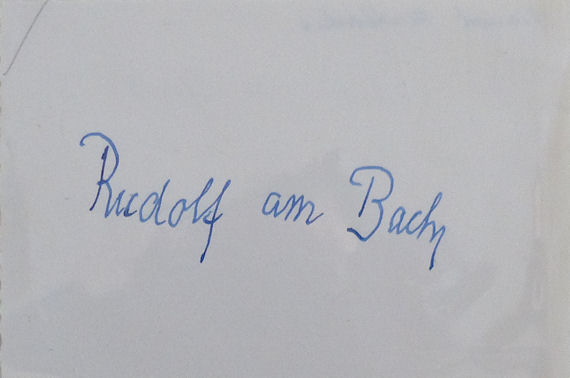 Rudolf am Bach